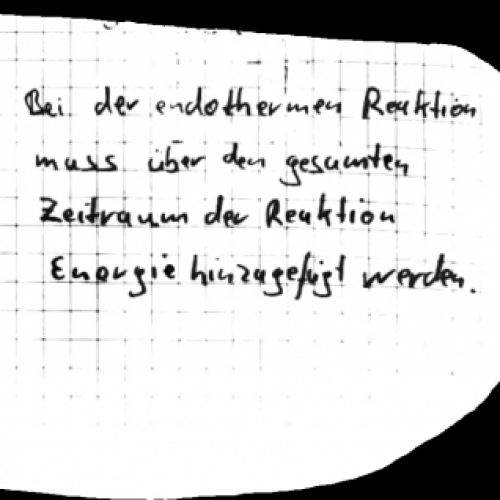 Bei der endothermen Reaktion
muss über den gesamten
Zeitraum der Reaktion
Energie hinzugefügt werden.